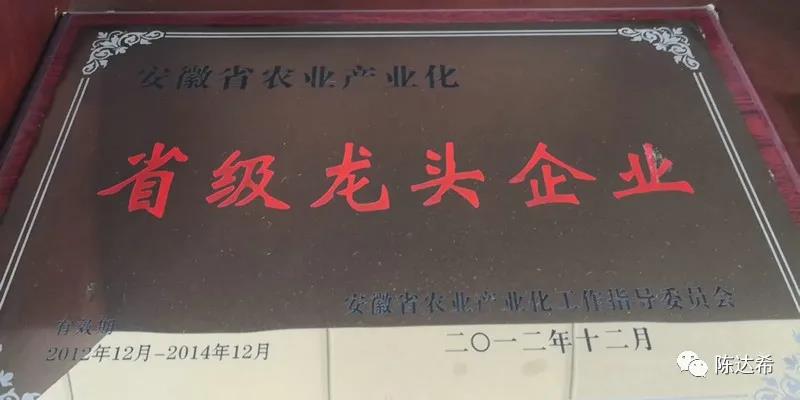 安徽省农业产业化
省级龙头企业
安徽省农业产业化工作指导委员会
有效期
2012年12月-2014年12月
二〇一二年十二月
陈达希